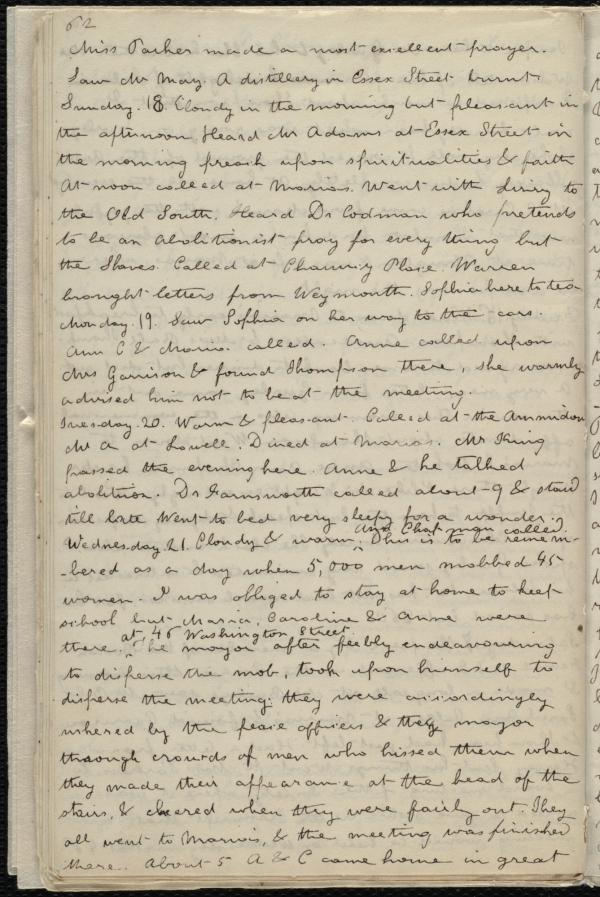 62
Miss Parker made a most excellent prayer.
Saw Mr May. A distillery in Essex Street burnt.
Sunday. 18. Cloudy in the morning but pleasant in
the afternoon. Heard Mr Adams at Essex Street in
the morning preach upon spiritualities & faith
At noon called at Marias. Went with to
the Old South. Heard Dr Codman who pretends
to be an abolitionist pray for every thing but
the Slaves. Called at Chauncy Place. Warren
brought letters from Weymouth. Sophia here to tea
Monday. 19. Saw Sophia on her way to the cars.
Ann C & Maria called. Anne called upon
Mrs Garrison & found Thompson there, she warmly
advised him not to be at the meeting.
Tuesday. 20. Warm & pleasant. Called at the Ammidon
Mr A at Lowell. Dined at Marias. Mr King
passed the evening here. Anne & he talked
abolition. Dr Farnsworth called about 9 & staid
till late Went to bed very sleepy for a wonder.
Ann Chapman called.
Wednesday 21. Cloudy & warm. This is to be remem-
-bered as a day when 5,000 men mobbed 45
women. I was obliged to stay at home to keep
school but Maria, Caroline & Anne were
at, 46 Washington Street
there. The mayor after feebly endeavouring
to disperse the mob, took upon himself to
disperse the meeting; they were accordingly
ushered by the peace officers & the mayor
through crowds of men who hissed them when
they made their appearance at the head of the
stairs, & cheered when they were fairly out. They
all went to Marias, & the meeting was finished
there. About 5 A & C came home in great